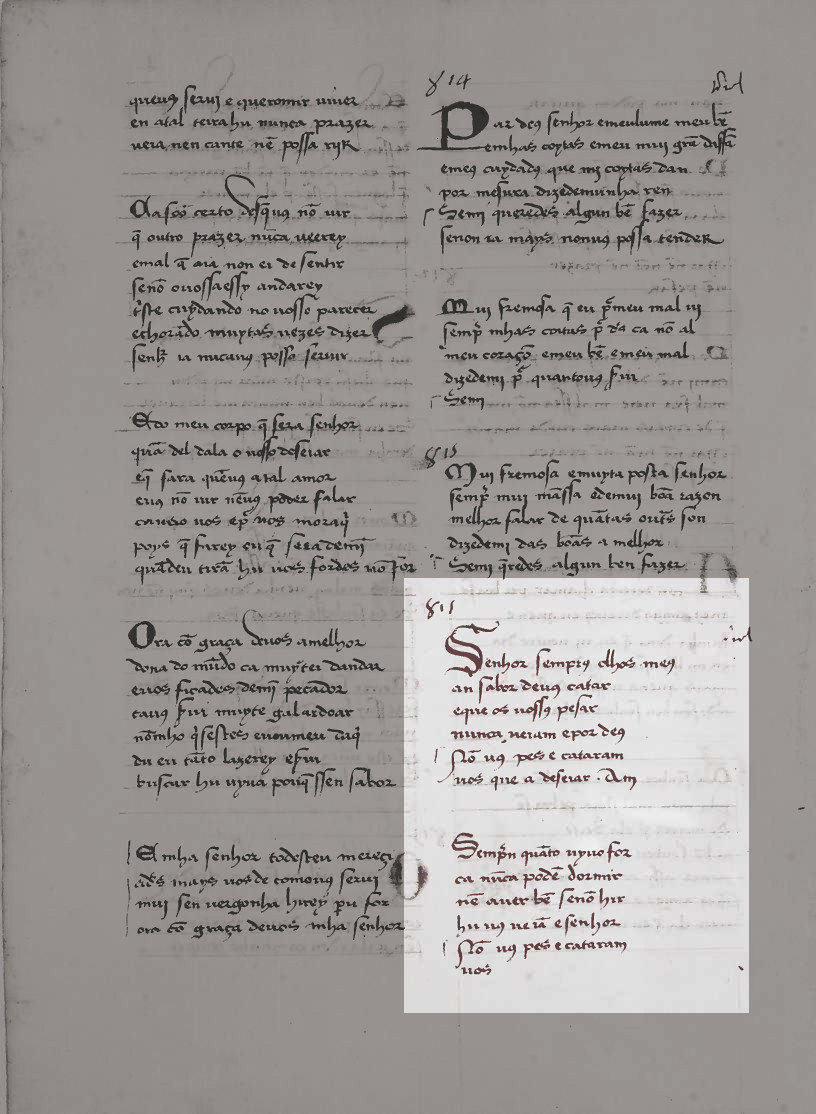 quevus servi e queromir viver
en atal terra hu nunca prazer
veia nen cante nē possa rijr
Ca soō certo desq̄vus nō vir
q̄ outro prazer nūca veerey
emal q̄ aia non ei de sentir
senō o vossa essy andarey
tⁱste cuydando no vosso parecer
echorādo muytas vezes dizer
senhʳ ia nūcavus posso servir
E do meu corpo q̄ sera senhor
quā del dala o vosso deseiar
eq̄ fara quēvus atal amor
e vus nō vir nēvus poder falar
ca veio vos ep̄ vos moraq̄
poys q̄ farey eu q̄ sera demī
quādeu tirā hu vos fordes nō for
Ora cō graça devos amelhor
dona do mūdo ca muytei dandar
e vos ficades demī pecador
ca vus fui muyte galardoar
du eu tāto lazerey e fui
buscar hu vyva porq̄ssen sabor
E mha senhor todesteu mereçi
a ds mays vos de comovus servi
mui sen vergonha hirey pu for
ora cō graça devos mha senhor
814
Par deus senhor emeulume meu bē
emhas coytas emeu mui grā diffā
emeus cuydadus que mi coytas dan
por mesura dizedemunha ren
Semi queredes algun bē fazer
senon ia mays nonvus possa tender
Mui fremosa q̄ eu p̄ meu mal vi
semp̄ mhas coitas p̄ ds ca nō al
meu coraçō emeu bē emeu mal
dizedemi p̄ quantovus fui
Semi
815
Mui fremosa emuyta posta senhor
semp̄ mui māssa edemui boā razon
melhor falar de quātas outs son
dizedemi das boās a melhor
Semi q̄redes algun ben fazer
811
Senhor semprus olhos meus
an sabor devus catar
eque os vossus pesar
nunca veiam e por deus
Nō vus pes e cataram
vos que a deseiar . Am
Sempn quāto vyvo for
ca nūca podē dormir
nē aver bē senō hir
hu vus veiā e senhor
Nō vus pes e cataram
vos